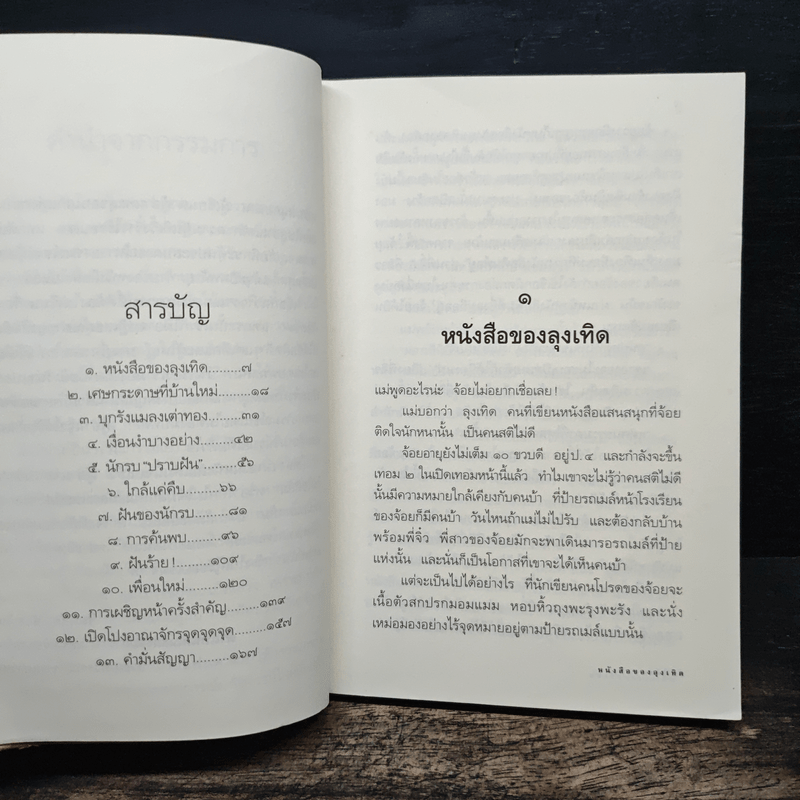 สารบัญ
๑. หนังสือของลุงเทิด.........๗
๒. เศษกระดาษที่บ้านใหม่.........๑๘
๓. บุกรังแมลงเต่าทอง.........๓๑
๔. เงื่อนงำบางอย่าง.........๔๒
๕. นักรบ “ปราบฝัน”.........๕๖
๖. ใกล้แค่คืบ.........๖๖
๗. ฝันของนักรบ.........๘๑
๘. การค้นพบ.........๙๖
๙. ฝันร้าย!.........๑๐๙
๑๐. เพื่อนใหม่.........๑๒๐
๑๑. การเผชิญหน้าครั้งสำคัญ.........๑๓๙
๑๒. เปิดโปงอาณาจักรจุดจุดจุด.........๑๕๗
๑๓. คำมั่นสัญญา.........๑๖๗
๑
หนังสือของลุงเทิด
แม่พูดอะไรน่ะ จ้อยไม่อยากเชื่อเลย!
แม่บอกว่า ลุงเทิด คนที่เขียนหนังสือแสนสนุกที่จ้อย
ติดใจนักหนานั้น เป็นคนสติไม่ดี
จ้อยอายุยังไม่เต็ม ๑๐ ขวบดี อยู่ ป. ๔ และกำลังจะขึ้น
เทอม ๒ ในเปิดเทอมหน้านี้แล้ว ทำไมเขาจะไม่รู้ว่าคนสติไม่ดี
นั้นมีความหมายใกล้เคียงกับคนบ้า ที่ป้ายรถเมล์หน้าโรงเรียน
ของจ้อยก็มีคนบ้า วันไหนถ้าแม่ไม่ไปรับ และต้องกลับบ้าน
พร้อมพี่จิ๋ว พี่สาวของจ้อยมักจะพาเดินมารอรถเมล์ที่ป้าย
แห่งนั้น และนั่นก็เป็นโอกาสที่เขาจะได้เห็นคนบ้า
แต่จะเป็นไปได้อย่างไร ที่นักเขียนคนโปรดของจ้อยจะ
เนื้อตัวสกปรกมอมแมม หอบหิ้วถุงพะรุงพะรัง และนั่ง
เหม่อมองอย่างไร้จุดหมายอยู่ตามป้ายรถเมล์แบบนั้น
หนังสือของลุงเทิด